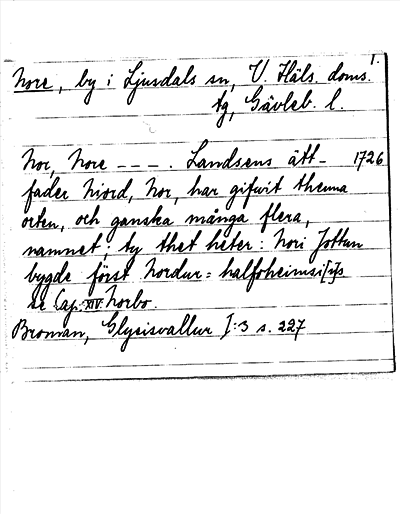 1.
Nore, by i Ljusdals sn, V. Häls. doms.
tg, Gävleb. l.
Nor, Nore - - - . Landsens ätt- 1726
fader Niord, Nor, har gifwit thenna
orten, och ganska många flera,
namnet; ty thet heter: Nori Jottun
bygde först Nordur = halfoheimsi[?]s
se Cap. XIV Norbo.
Broman, Glysisvallur I:3 s. 227